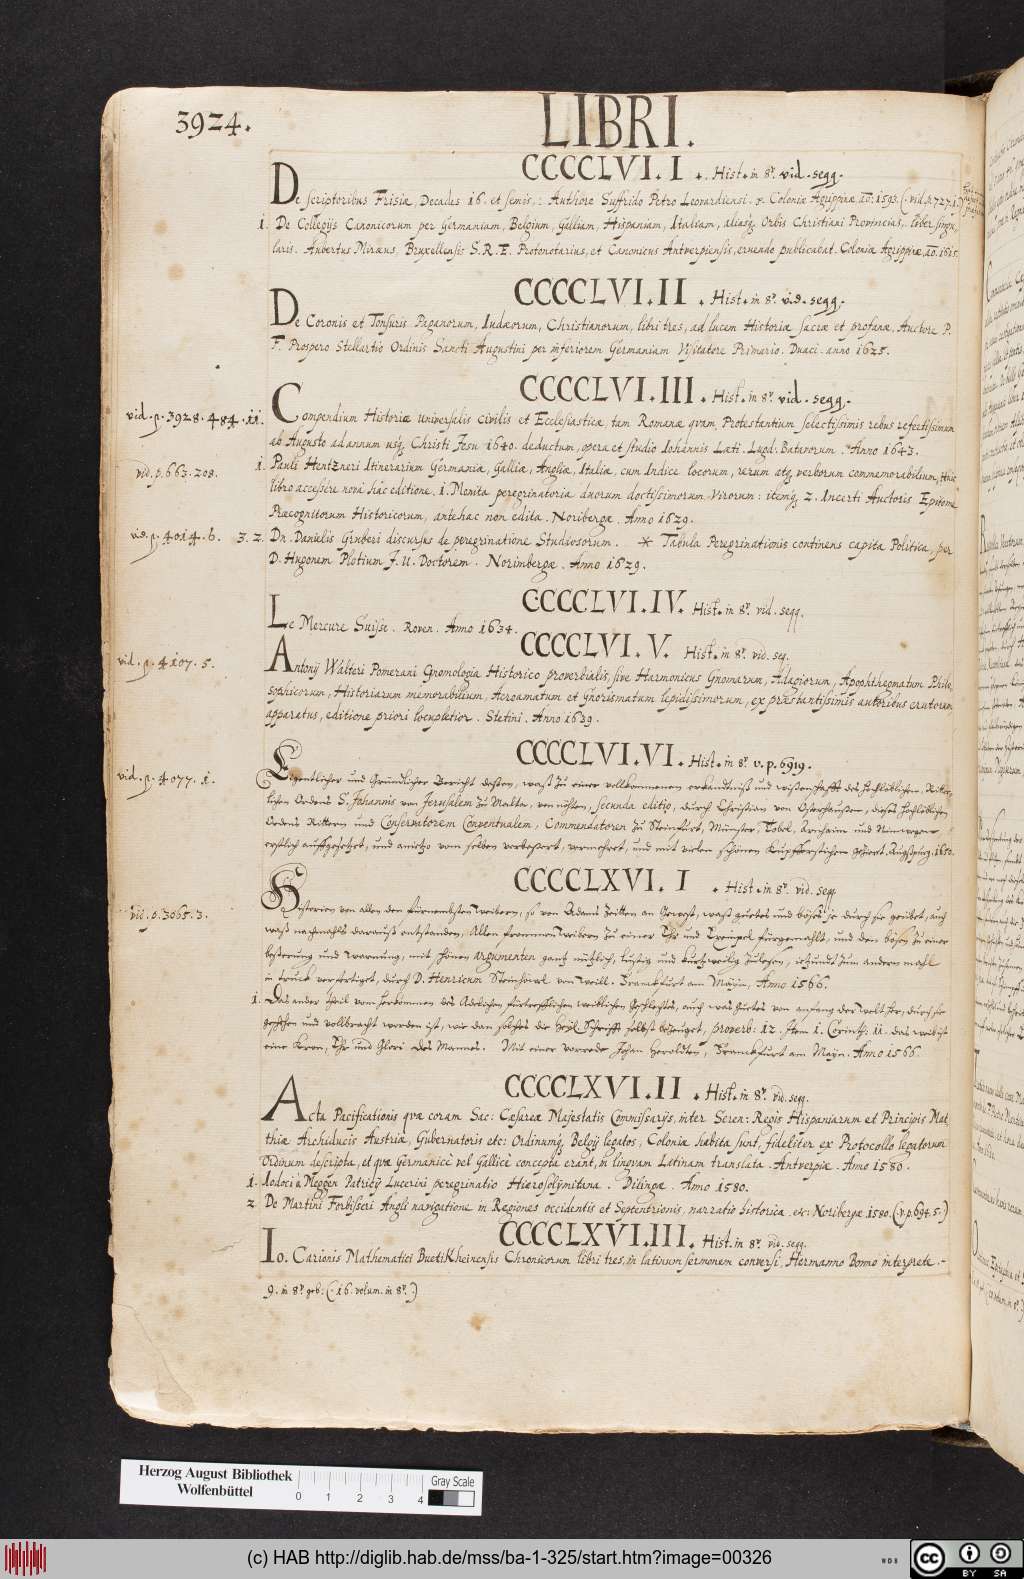 3924.
LIBRI.
CCCCLVI. I . Hist. in 8º. vid. seqq.
De scriptoribus Frisiæ, Decades 16. et semis,: Authore Suffrido Petro Leovardiensi. Coloniæ Agrippinæ, aõ: 1593. (. vid. p. 727. 1.)
1. De Collegijs Canonicorum per Germaniam, Belgium, Galliam, Hispaniam, Italiam, aliasq. Orbis Christiani Provincias, Liber singu
laris. Aubertus Miræus, Bruxellensis S. R. E. Protonotarius, et Canonicus Antverpiensis, eruendo publicabat. Coloniæ Agrippinæ, aõ. 1615.
CCCCLVI. II . Hist. in 8º. vid. seqq.
De Coronis et Tonsuris Paganorum, Iudæorum, Christianorum, libri tres, ad lucem Historiæ sacræ et profanæ, Auctore P.
F. Prospero Stellartio Ordinis Sancti Augustini per inferiorem Germaniam Visitatore Primario. Duaci. anno 1625.
CCCCLVI. III . Hist. in 8º. vid. seqq.
vid. p. 3928. 484. 11.
Compendium Historiæ universalis civilis et Ecclesiasticæ, tam Romanæ qvam, Protestantium selectissimis rebus refertissimum
ab Augusto ad annum usq. Christi Jesu 1640. deductum, opera et studio Iohannis Læti. Lugd: Batavorum. Anno 1643.
vid. p. 663. 208.
1. Pauli Hentzneri Itinerarium Germaniæ, Galliæ, Angliæ, Italiæ, cum Indice locorum, rerum atq. verborum commemorabilium, Huic
libro accessére novâ hâc editione, 1. Monita peregrinatoria duorum doctissimorum Virorum: itemq. 2. Incerti Auctoris Epitome
Præcognitorum Historicorum, antehac non edita. Noribergæ. Anno 1629.
vid. p. 4014. 6.
3. 2. Dn. Danielis Gruberi discursus de peregrinatione Studiosorum. * Tabula Peregrinationis continens capita Politica, per
D. Hugonem Plotium J. U. Doctorem. Norimbergæ. Anno 1629.
CCCCLVI. IV. Hist. in 8º. vid. seqq.
Le Mercure Suisse. Roven. Anno 1634.
CCCCLVI. V. Hist. in 8º. vid. seq.
vid. p. 4107. 5.
Antonij Wälteri Pomerani Gnomologia Historico proverbialis, sive Harmonicus Gnomarum, Adagiorum, Apophthegmatum Philo,
sophicorum, Historiarum memorabilium, Acroamatum et Gnorismatum lepidissimorum, ex præstantissimis autoribus erutorum
apparatus, editione priori locupletior. Stetini. Anno 1639.
CCCCLVI. VI. Hist. in 8º v. p. 6919.
vid. p. 4077. 1.
Eigentlicher und Gründlicher Bericht dessen, waß zu einer vollkommenen erkändtniß und wissenschafft des Hochlöblichen, Ritter,
lichen Ordens S. Johannis von Jerusalem zu Malta, von nöthen, secunda editio, durch Christian von Osterhausen, dieses Hochlöblichen
Ordens Rittern und Conservatorem Conventualem, Commendatoren zu Steinfurt, Münster, Tobel, Arnheim und Nimwegen
erstlich auffgesetzet, und anietzo vom selben verbessert, vermehret, und mit vielen schönen Kupfferstichen gezieret. Augspurg. 1650.
CCCCLXVI. I . Hist. in 8º. vid. seqq.
vid. p. 3065. 3.
Historien von allen den fürnembsten weibern, so von Adams Zeitten an gewest, waß guetes und böses je durch sie geübet, auch
waß nachmahls darauß entstanden, Allen frommen weibern zu einer Ehr und Exempel fürgemahlt, und den bösen zu einer
besserung und warnung, mit schönen argumenten gantz nützlich, lustig und kurtzweilig zulesen, ietzundt zum andern mahl
in truck verfertiget, durch D. Henricum Steinhöwel von weill. Franckfurt am Mayn, Anno 1566.
1. Das ander theil vom herkommen des Adelichen, fürtrefflichen weiblichen Geschlechts, auch was Guetes von anfang der welt her, durch sie
geschehen und vollbracht worden ist, wie dan solches die heyl. Schrifft selbst bezeuget, proverb: 12. Item 1. Corinth: 11. das weib ist
eine Kron, Ehr und Glori des Mannes. Mit einer vorrede Johan Heroldten, Franckfurt am Mayn. Anno 1566.
CCCCLXVI. II . Hist. in 8º. vid. seqq.
Acta Pacificationis qvæ coram Sac: Cæsareæ Majestatis Commissarijs, inter Seren: Regis Hispaniarum et Principis Mat,
thiæ Archiducis Austriæ, Gubernatoris etc: Ordinumq. Belgij legatos, Coloniæ habita sunt, fideliter ex Protocollo legatorum
Ordinum descripta, et qvæ Germanicè vel Gallicè concepta erant, in lingvam Latinam translata. Antverpiæ. Anno 1580.
1. Iodoci à Meggen Patricij Lucerini peregrinatio Hierosolymitana. Dilingæ. Anno 1580.
2 De Martini Forbisseri Angli navigatione in Regiones occidentis et Septentrionis, narratio historica. ec: Noribergæ. 1580. (. v. p. 694. 5.)
CCCCLXVI. III. Hist. in 8º. vid. seqq.
Io. Carionis Mathematici Buetikheinensis Chronicorum libri tres, in latinum sermonem conversi, Hermanno Bonno interprete.
9. in 8º. geb: (. 16. volum. in 8º.)
Herzog August Bibliothek
Wolfenbüttel
0 1 2 3 4
Gray Scale
(c) HAB http://diglib.hab.de/mss/ba-1-325/start.htm?image=00326
WDB
cc BY SA